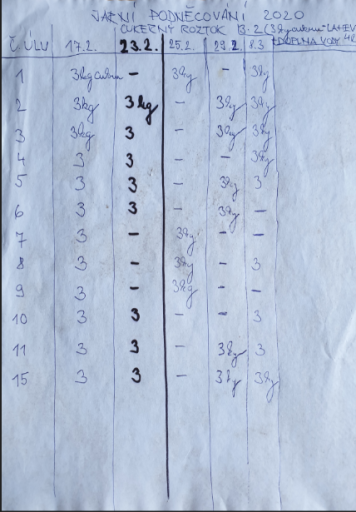 JARNÍ PODNĚCOVÁNÍ 2020
CUKERNÝ ROZTOK
Č. ÚLU 17.2. 23.2. 25.2. 29.2. 8.3
1 3kg cukru - 3kg - 3kg
2 3kg 3kg - 3kg 3kg
3 3kg 3 - 3kg 3kg
4 3 3 - - 3kg
5 3 3 - 3kg 3
6 3 3 - 3kg -
7 3 - 3kg - -
8 3 - 3kg - 3
9 3 - 3kg - -
10 3 3 - - 3
11 3 3 - 3kg 3
15 3 3 - 3kg 3kg